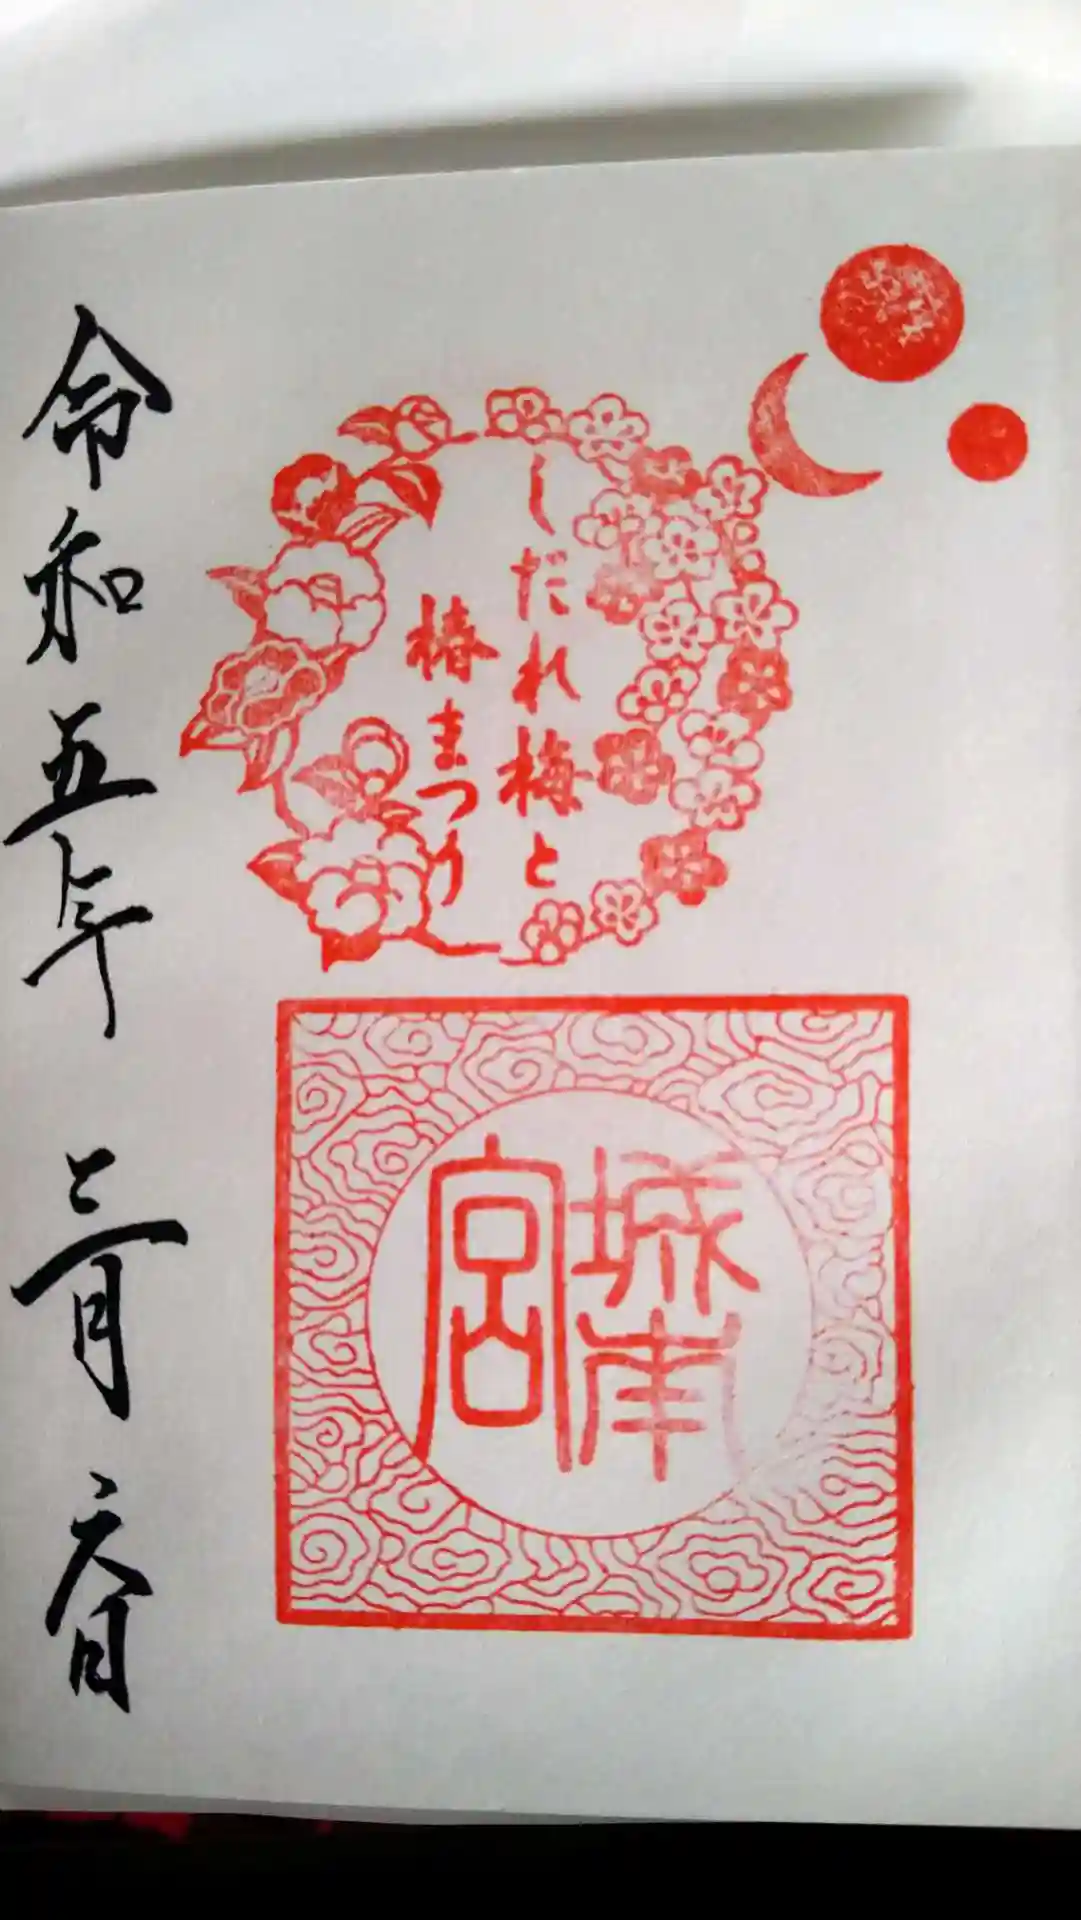 しだれ梅と
椿まつり
城南
宮
令和五年 三月 六日